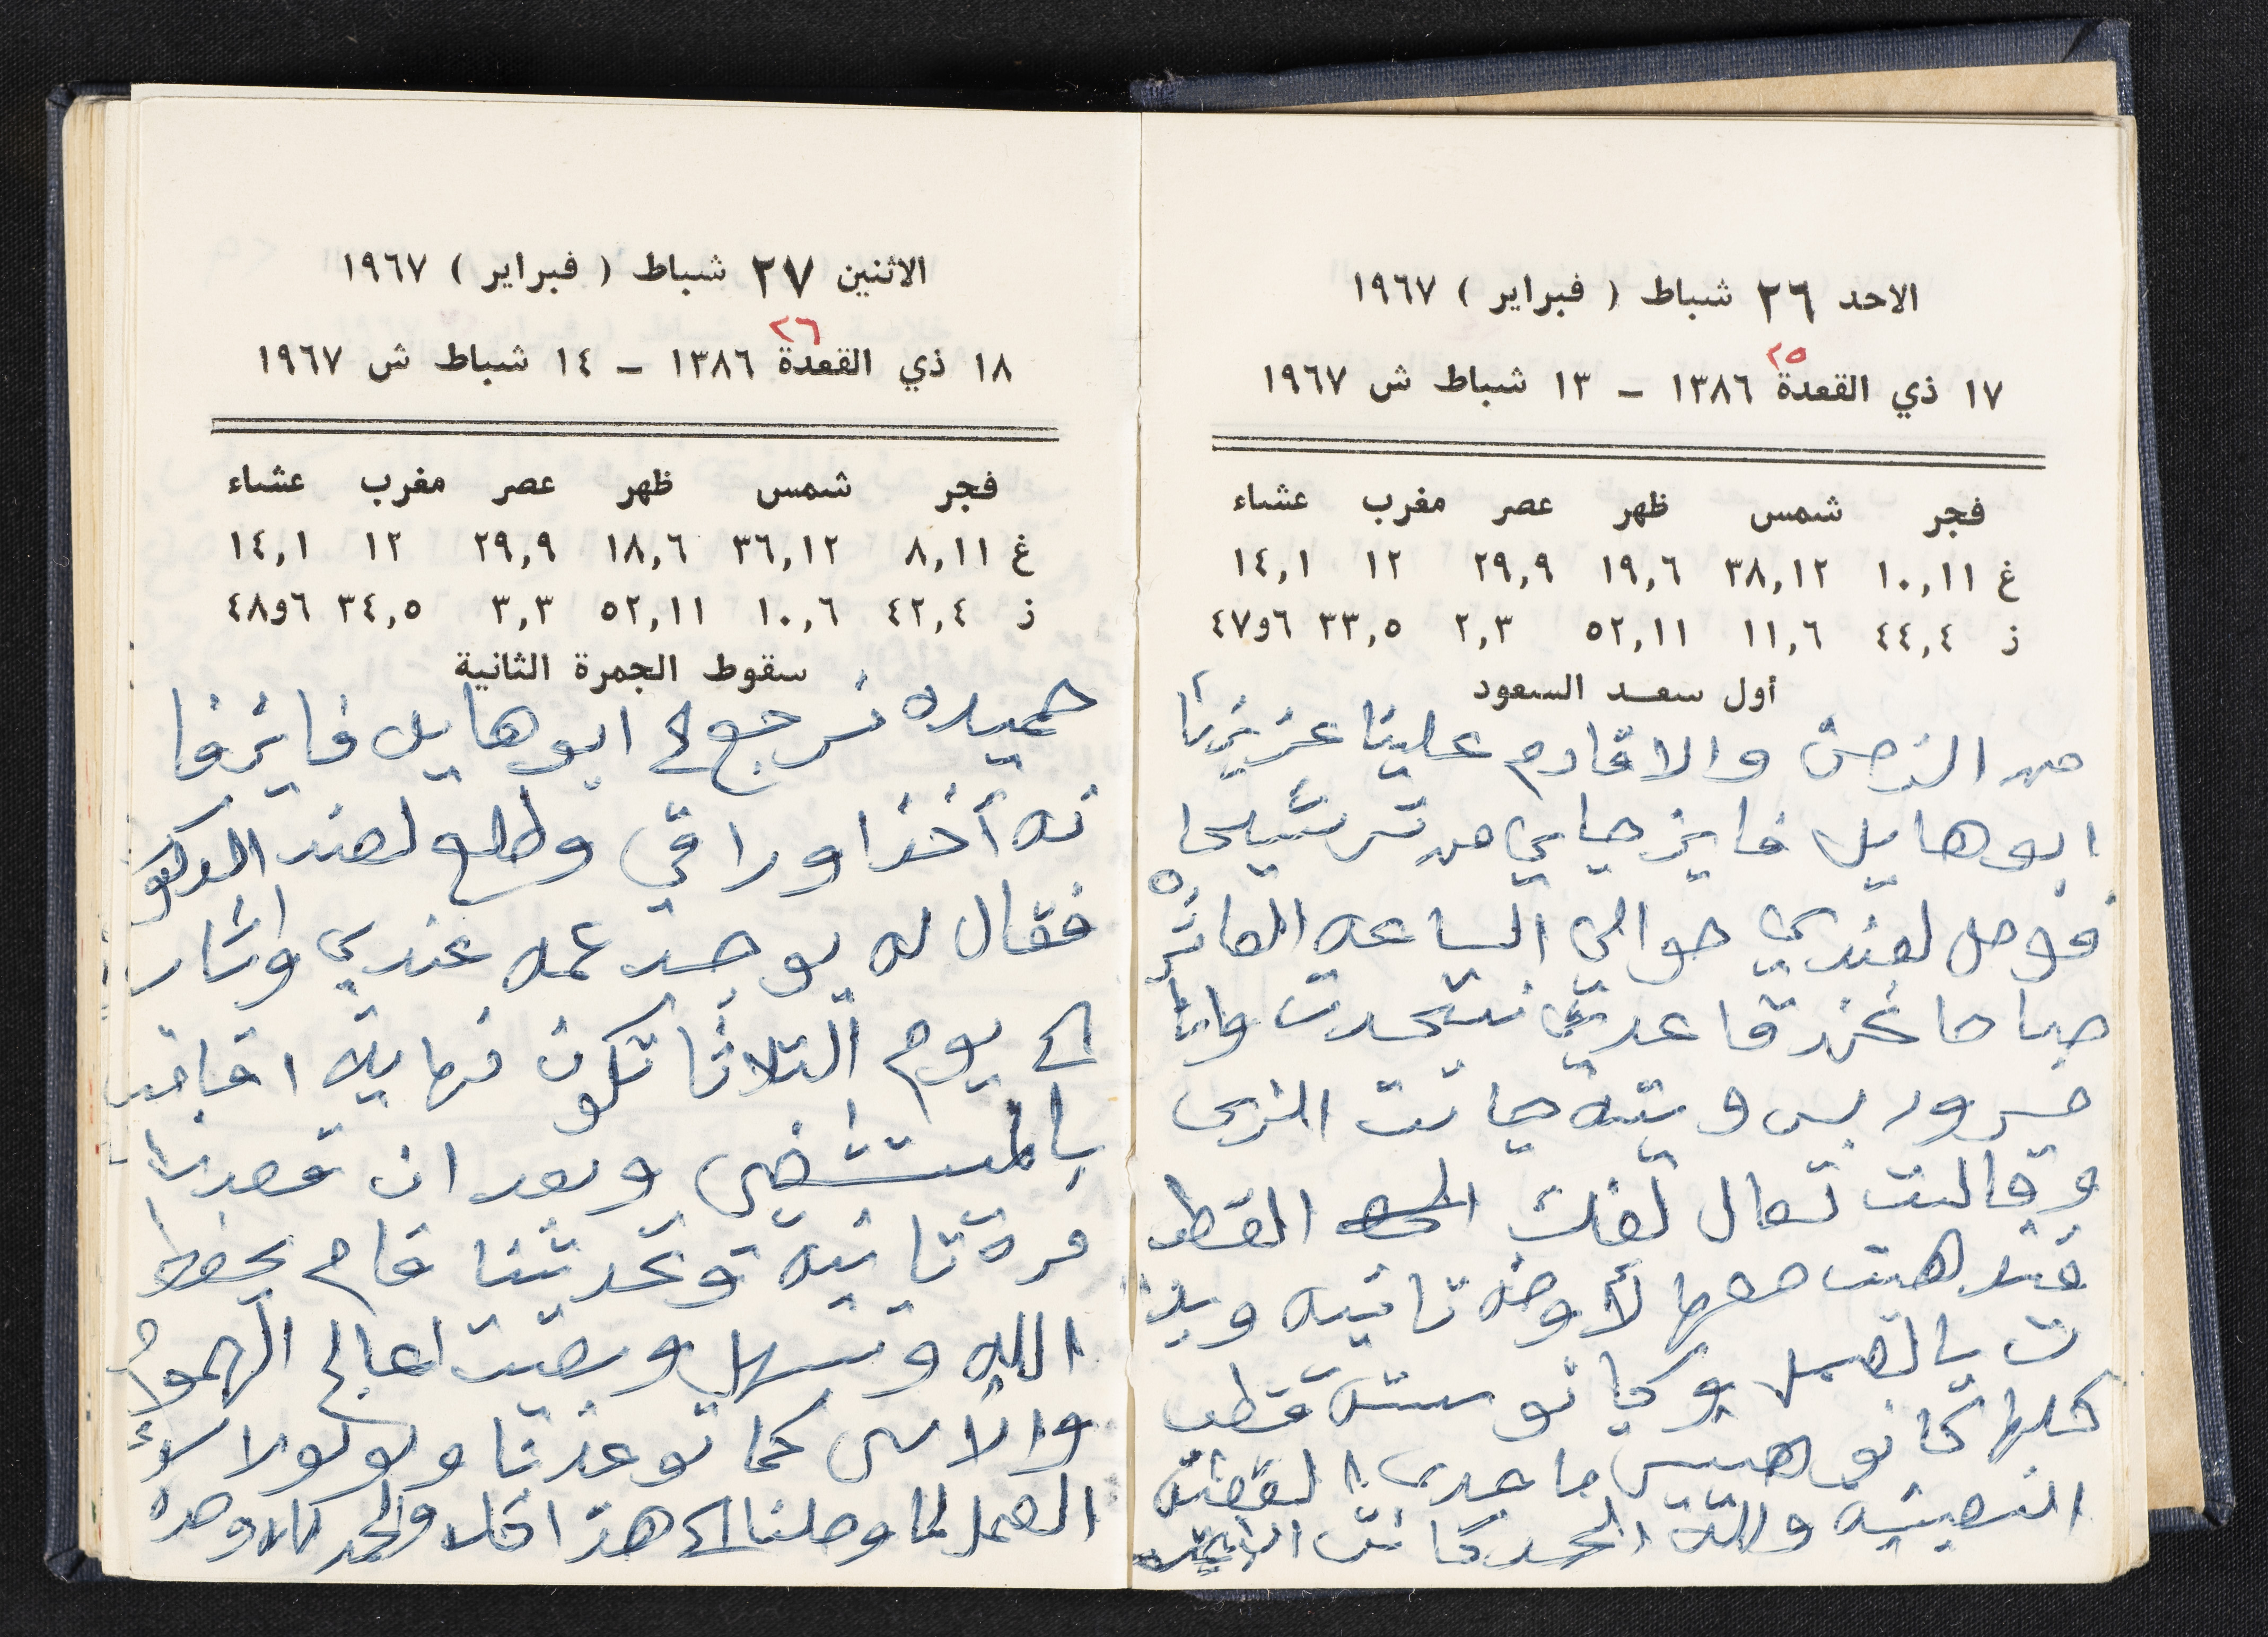 الاحد ٢٦ شباط ( فبراير ) ١٩٦٧
٢٥
١٧ ذي القعدة ١٣٨٦ – ١٣ شباط ش ١٩٦٧
فجر شمس ظهر عصر مغرب عشاء
غ ١٠,١١ ٣٨,١٢ ١٩,٦ ٢٩,٩ ١٢ ١٤,١
ز ٤٤,٤ ١١,٦ ٥٢,١١ ٢,٣ ٣٣,٥ ٦و٤٧
أول سعد السعود
من الزمن والا قادم علينا عزيزنا
ابو هايل فايز جاي من ترشيحا
فوصل لعندي حوالي الساعه العاشره
صباحا نحن قاعدين نتحدث وانا
مسرور بس ويته جائت
وقالت تعال لفك القطب
فذهبت معها لأوضه تانيه وبد
ت بالعمل وكانو سته قطب
كلها كانو هيس ما عدى القطبه
ولله الحمد كانت
الاثنين ٢٧ شباط ( فبراير ) ١٩٦٧
٢٦
١٨ ذي القعدة ١٣٨٦ – ١٤ شباط ش ١٩٦٧
فجر شمس ظهر عصر مغرب عشاء
غ ٨,١١ ٣٦,١٢ ١٨,٦ ٢٩,٩ ١٢ ١٤,١
ز ٤٢,٤ ١٠,٦ ٥٢,١١ ٣,٣ ٣٤,٥ ٦و٤٨
سقوط الجمرة الثانية
حميده نرجع الى ابو هايل فايز فا
نه أخذ اوراقي وطلع لعند الدكتو
فقال له يوجد عمه عندي واشار
الى يوم التلاثا تكون نهاية اقامت
بالمستشفى وبعد ان قعدنا
مرة تانية وتحدثنا قام بحفظ
الله وتسهل وبقيت اعالج الهموم
والأسى كما توعدنا ولو لولا
العمل لما وصلنا الى هذا الحد والحمد لله وحده